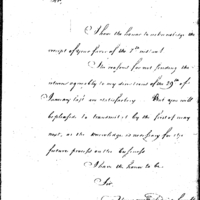 Sir,
I have the honor to acknowledge the
receipt of your favor of the 1st instant
The reasons for not sending the
returns agreeably to my directions of the 29th of
January last are satisfactory. But you will
be pleased to transmit by the first of may
next, as the knowledge is necessary for the
future process on the business
I have the honor to be
Sir